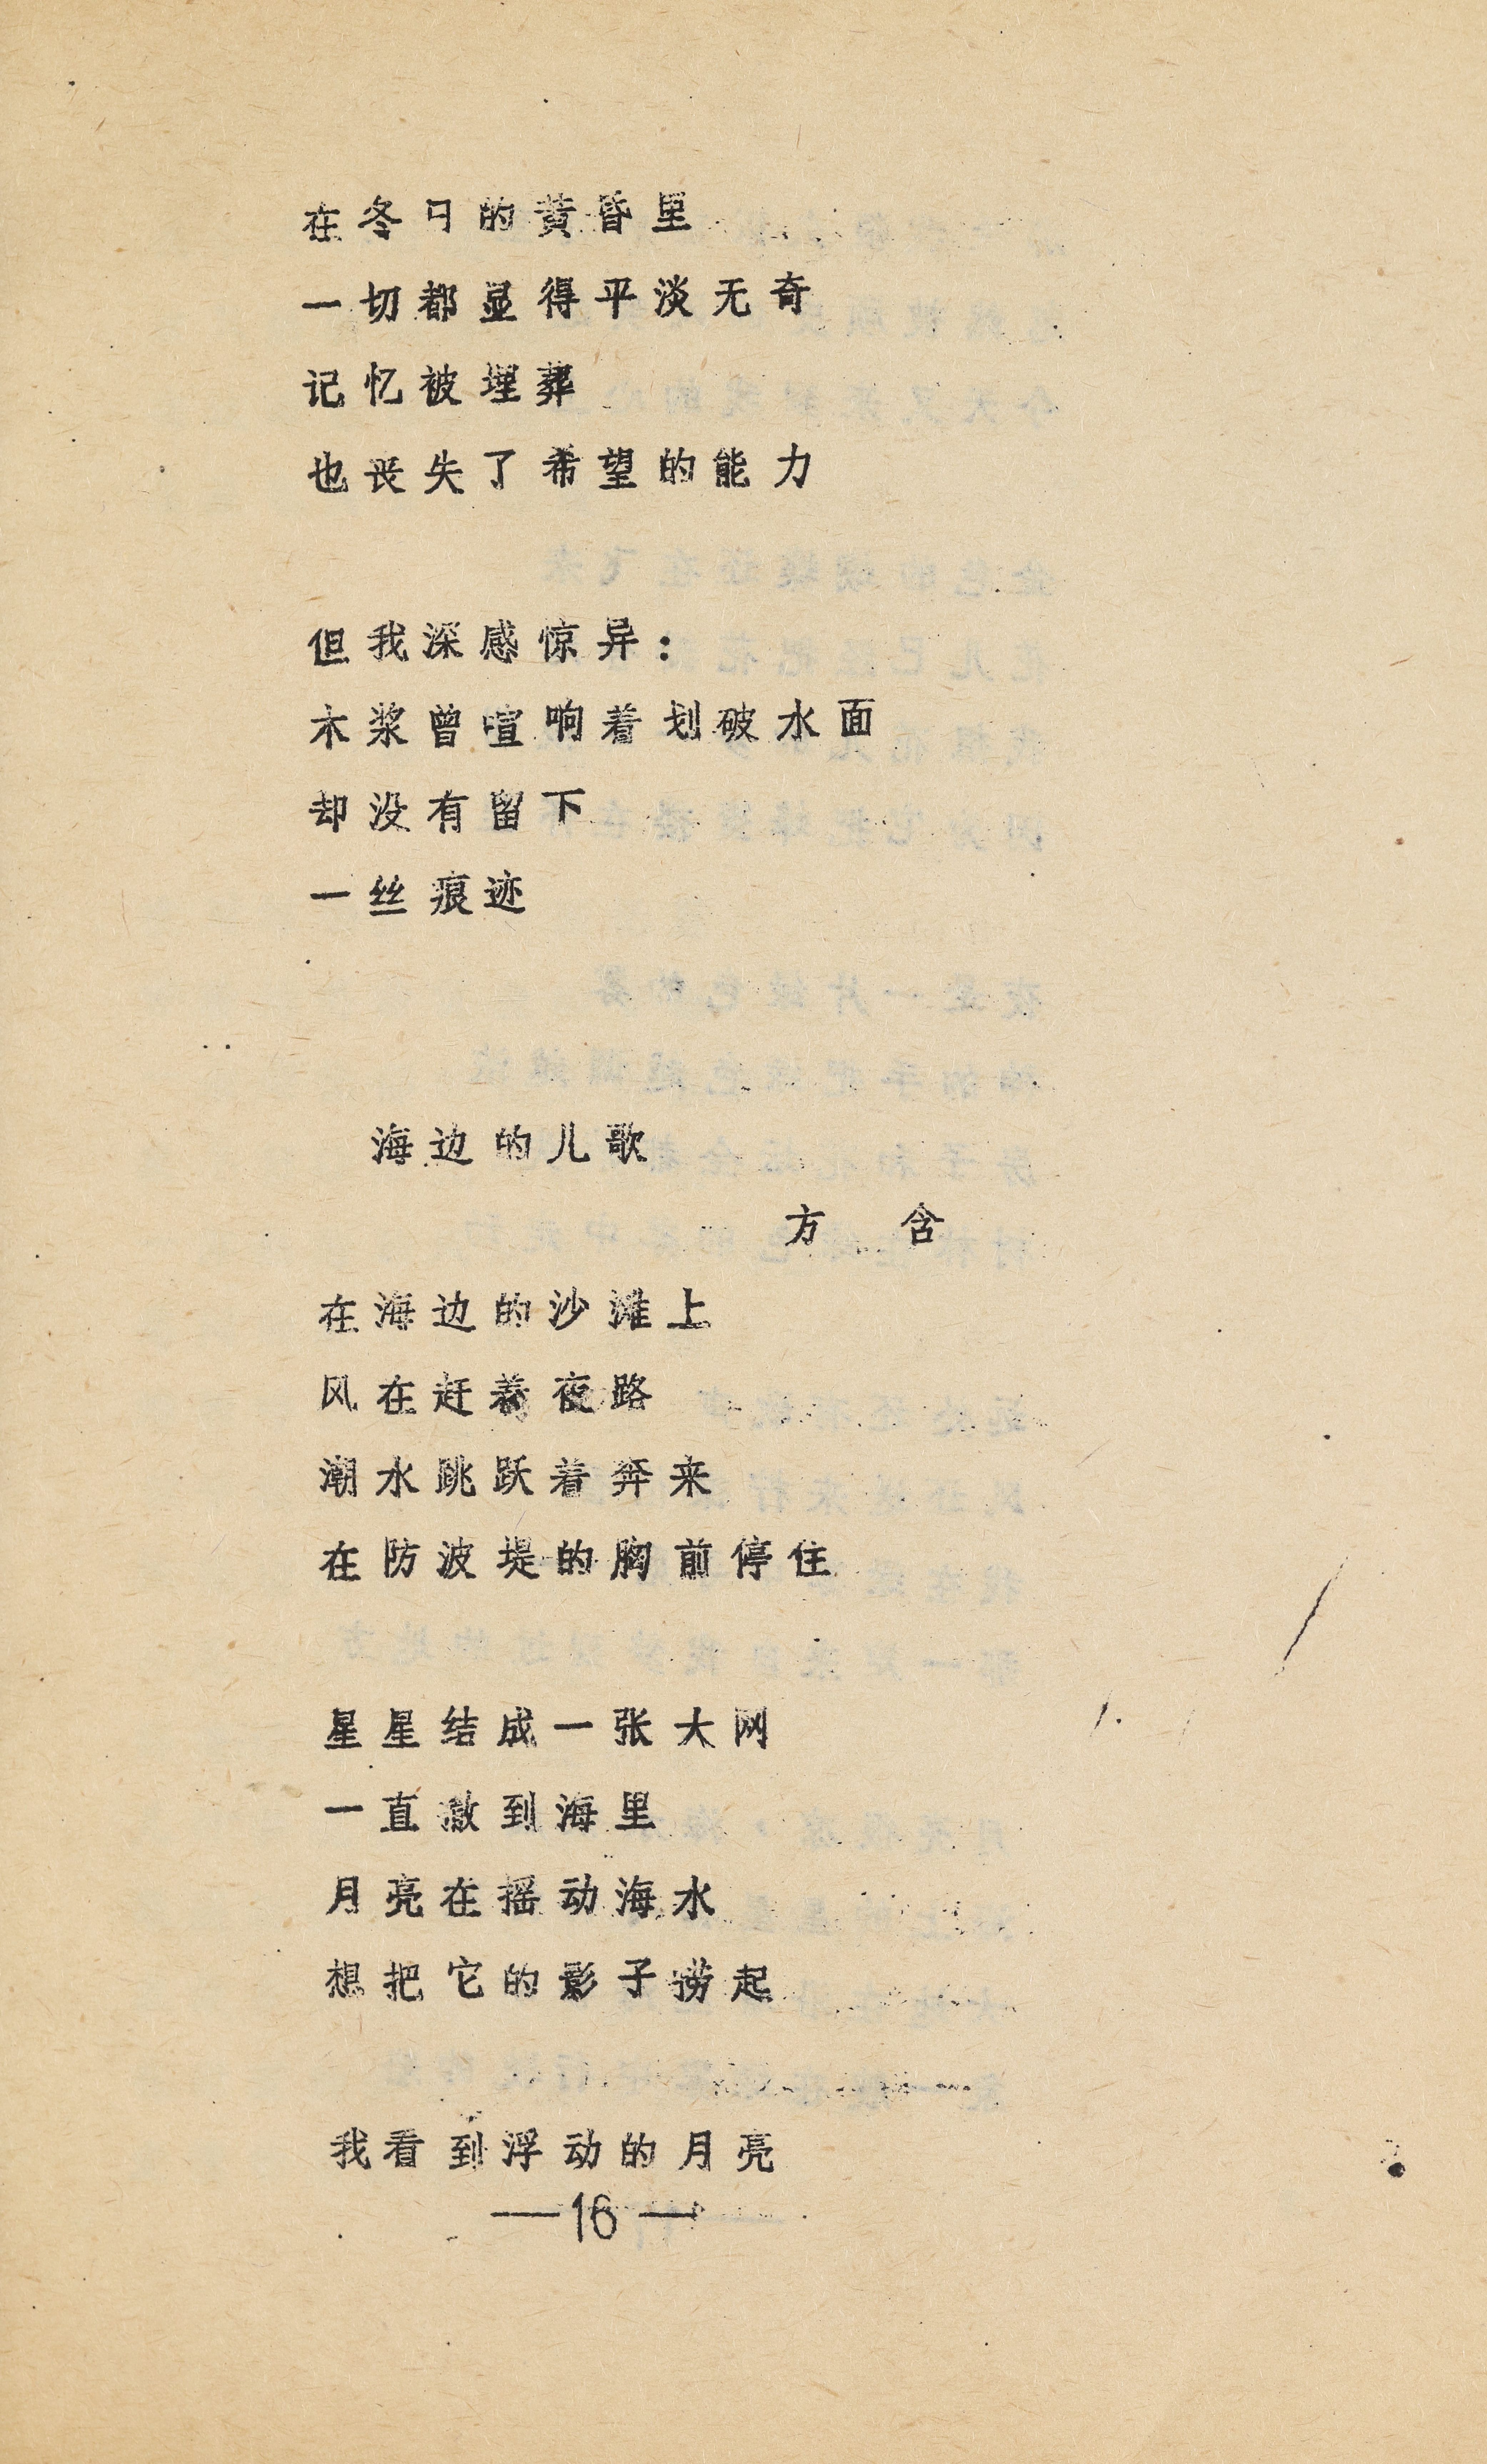 在冬日的黄昏里
一切都显得平淡无奇
记忆被埋葬
也丧失了希望的能力
但我深感惊异：
木浆曾喧响着划破水面
却没有留下
一丝痕迹
海边的儿歌
方 含
在海边的沙滩上
风在赶着夜路
潮水跳跃着奔来
在防波堤的胸前停住
星星结成一张大网
一直撒到海里
月亮在摇动海水
想把它的影子捞起
我看到浮动的月亮
—16—